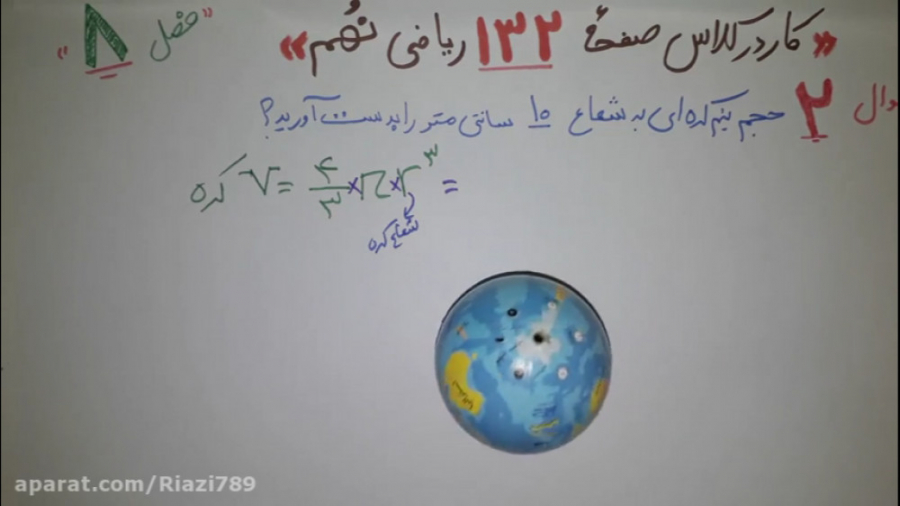 «کار در کلاس صفحهٔ ۱۳۲ ریاضی نهم»
"فصل ۸"
سوال ۲ حجم نیم کره ای به شعاع ۱۰ سانتی متر را بدست آورید؟
کره V = ۴/۳ × π × r^۳ =
شعاع کره
aparat.com/Riazi789